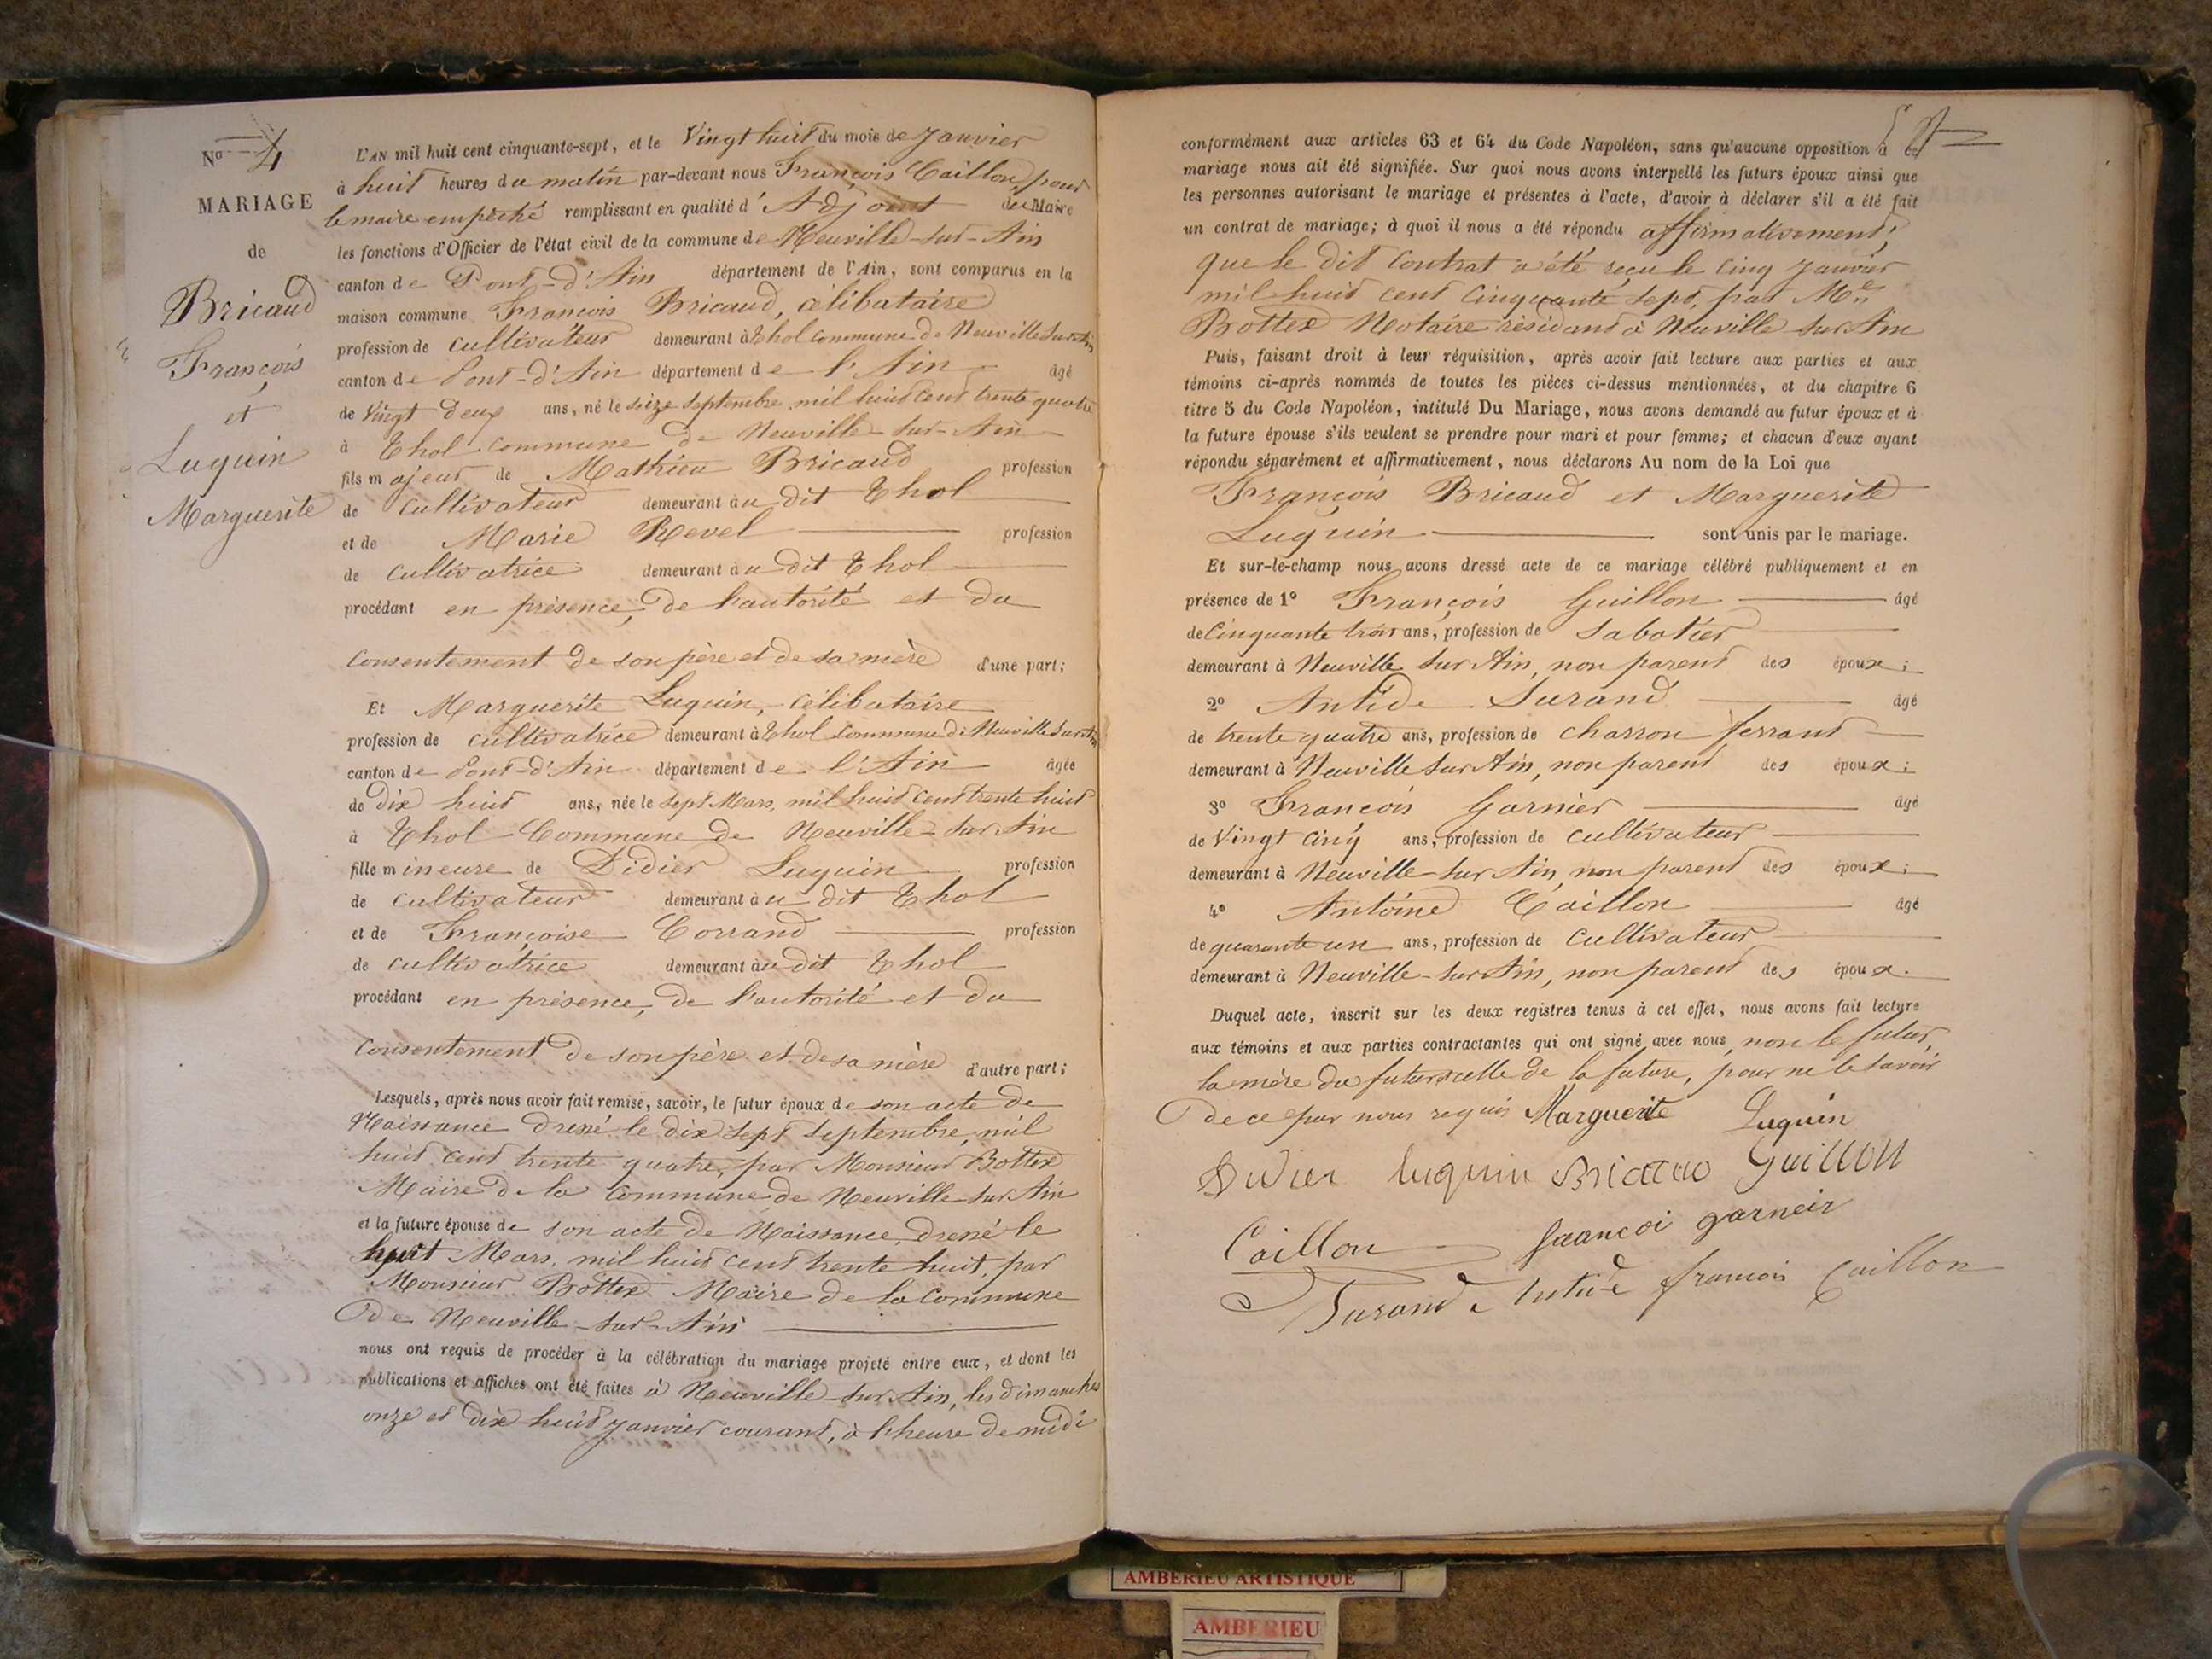 Nº 4
MARIAGE
de
Bricaud
François
et
Luquin
Marguerite
L'AN mil huit cent cinquante-sept, et le Vingt huit du mois de Janvier
à huit heures du matin par-devant nous François Caillon, pour
le maire empêché remplissant en qualité d'Adjoint du Maire
les fonctions d'Officier de l'état civil de la commune de Neuville-sur-Ain
canton de Pont-d'Ain département de l'Ain, sont comparus en la
maison commune François Bricaud, célibataire
profession de cultivateur demeurant à Thol commune de Neuville sur Ain
canton de Pont-d'Ain département de l'Ain âgé
de Vingt deux ans, né le seize septembre mil huit cent trente quatre
à Thol commune de Neuville-sur-Ain
fils majeur de Mathieu Bricaud profession
de cultivateur demeurant au dit Thol
et de Marie Revel profession
de cultivatrice demeurant au dit Thol
procédant en présence, de l'autorité et du
consentement de son père et de sa mère d'une part;
Et Marguerite Luquin, célibataire
profession de cultivatrice demeurant à Thol commune de Neuville sur Ain
canton de Pont-d'Ain département de l'Ain âgée
de dix huit ans, née le sept Mars, mil huit cent trente huit
à Thol Commune de Neuville-sur Ain
fille mineure de Didier Luquin profession
de cultivateur demeurant au dit Thol
et de Françoise Corrand profession
de cultivatrice demeurant au dit Thol
procédant en présence, de l'autorité et du
consentement de son père et de sa mère d'autre part;
Lesquels, après nous avoir fait remise, savoir, le futur époux de son acte de
Naissance dressé le dix sept septembre, mil
huit cent trente quatre, par Monsieur Bottex
Maire de la Commune de Neuville-sur Ain
et la future épouse de son acte de Naissance, dressé le
huit Mars, mil huit cent trente huit, par
Monsieur Bottex Maire de la Commune
de Neuville-sur-Ain
nous ont requis de procéder à la célébration du mariage projeté entre eux, et dont les
publications et affiches ont été faites à Neuville-sur Ain, les dimanches
onze et dix huit janvier courant, à l'heure de midi
conformément aux articles 63 et 64 du Code Napoléon, sans qu'aucune opposition à ce
mariage nous ait été signifiée. Sur quoi nous avons interpellé les futurs époux ainsi que
les personnes autorisant le mariage et présentes à l'acte, d'avoir à déclarer s'il a été fait
un contrat de mariage; à quoi il nous a été répondu affirmativement;
que le dit contrat a été reçu le cinq Janvier
mil huit cent cinquante sept, par Me
Bottex Notaire résidant à Neuville sur Ain
Puis, faisant droit à leur réquisition, après avoir fait lecture aux parties et aux
témoins ci-après nommés de toutes les pièces ci-dessus mentionnées, et du chapitre 6
titre 5 du Code Napoléon, intitulé Du Mariage, nous avons demandé au futur époux et à
la future épouse s'ils veulent se prendre pour mari et pour femme; et chacun d'eux ayant
répondu séparément et affirmativement, nous déclarons Au nom de la Loi que
François Bricaud et Marguerite
Luquin sont unis par le mariage.
Et sur-le-champ nous avons dressé acte de ce mariage célébré publiquement et en
présence de 1º François Guillon âgé
de Cinquante trois ans, profession de sabotier
demeurant à Neuville sur Ain, non parent des époux;
2º Antide Durand âgé
de trente quatre ans, profession de charron ferrant
demeurant à Neuville sur Ain, non parent des époux;
3º François Garnier âgé
de Vingt cinq ans, profession de cultivateur
demeurant à Neuville-sur Ain, non parent des époux;
4º Antoine Caillon âgé
de quarante un ans, profession de cultivateur
demeurant à Neuville-sur Ain, non parent des époux.
Duquel acte, inscrit sur les deux registres tenus à cet effet, nous avons fait lecture
aux témoins et aux parties contractantes qui ont signé avec nous, non le futur,
la mère du futur et celle de la future, pour ne le savoir
de ce par nous requis Marguerite Luquin
Didier luquin Bricaud Guillon
Caillon francoi garneir
Durand Antide francois Caillon
AMBERIEU ARTISTIQUE
AMBERIEU